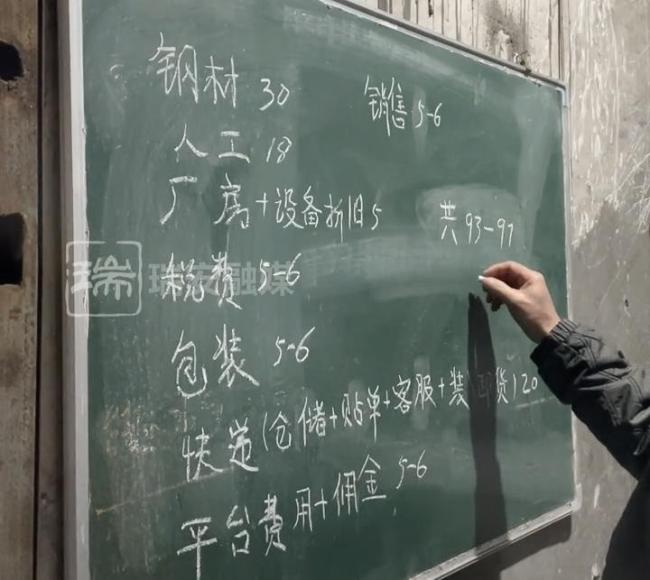 钢材 30
人工 18
厂房+设备折旧5
税费 5-6
包装 5-6
快递(仓储+贴单+客服+装卸货120
平台费用+佣金 5-6
销售 5-6
共 93-97
瑞 瑞安融媒